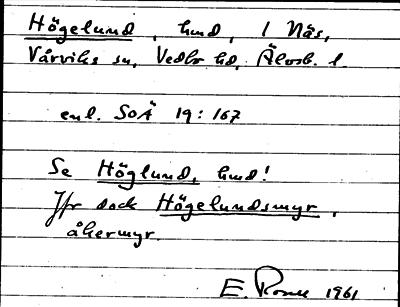 Högelund, hmd, 1 Näs,
Vårviks sn, Vedbo hd, Älvsb. l.
enl. SOÄ 19:167
Se Höglund, hmd!
Jfr dock Högelundsmyr,
åkermyr.
E. 1961